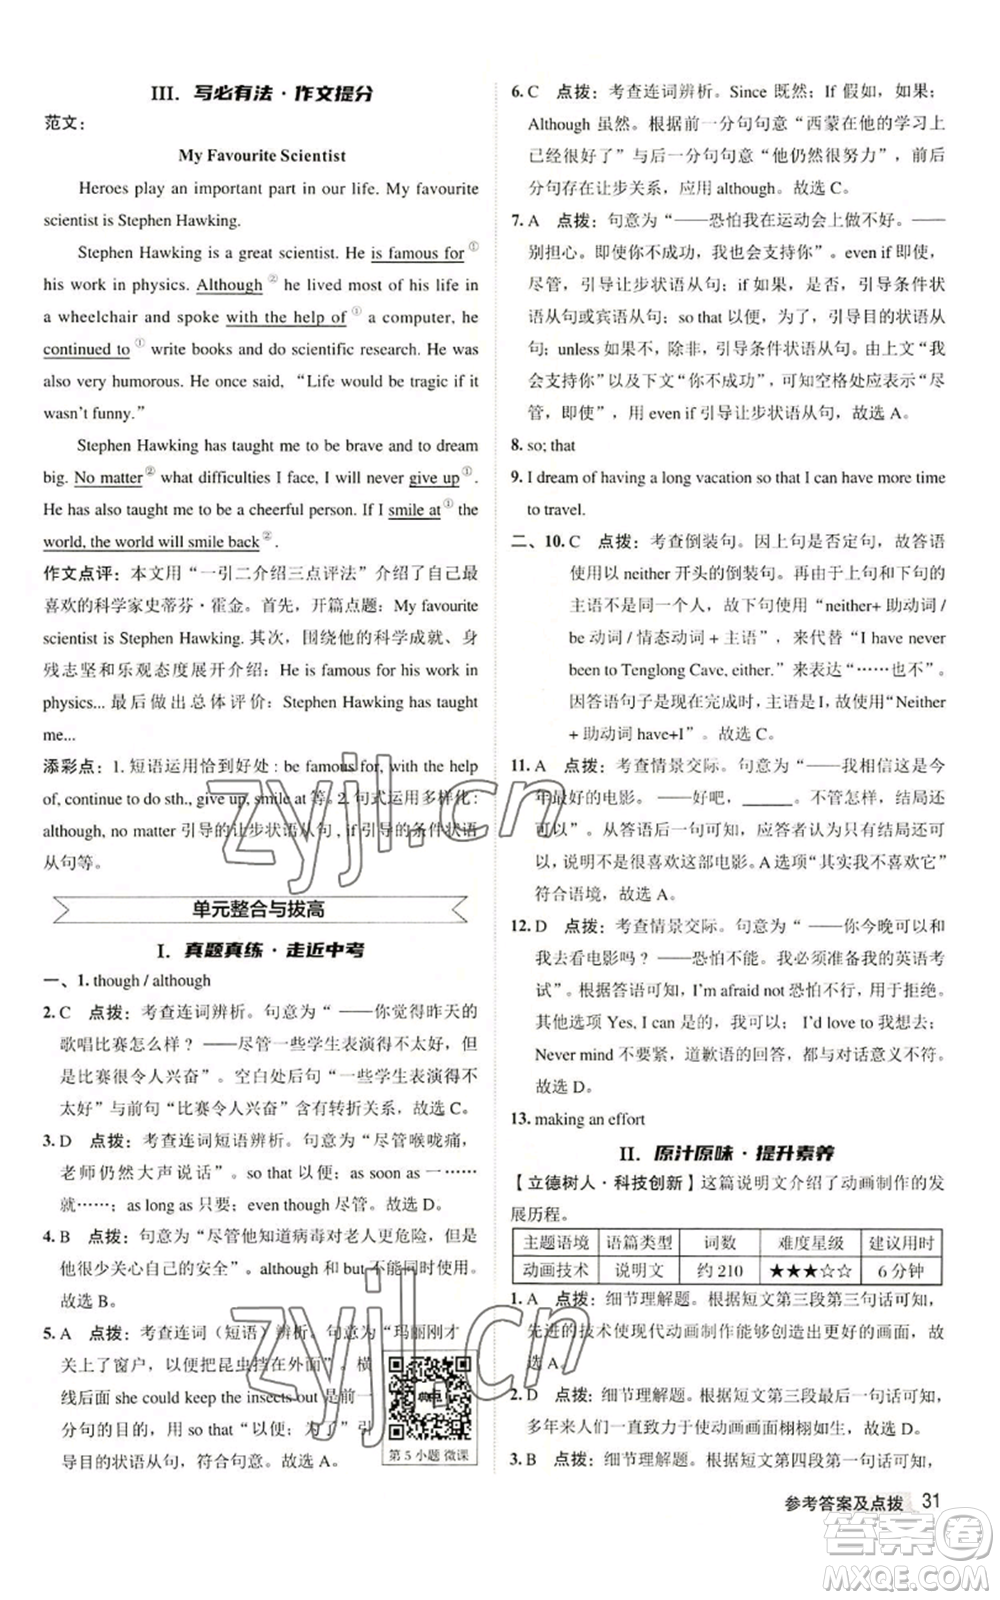 III. 写必有法·作文提分
范文：
My Favourite Scientist
Heroes play an important part in our life. My favourite
scientist is Stephen Hawking.
Stephen Hawking is a great scientist. He is famous for①
his work in physics. Although② he lived most of his life in
a wheelchair and spoke with the help of① a computer, he
continued to① write books and do scientific research. He was
also very humorous. He once said, “Life would be tragic if it
wasn't funny.”
Stephen Hawking has taught me to be brave and to dream
big. No matter② what challenges I face, I will never give up①.
He has also taught me to be a cheerful person. If I smile at① the
world, the world will smile back②.
作文点评：本文用“一引二介绍三点评法”介绍了自己最
喜欢的科学家史蒂芬·霍金。首先，开篇点题：My favourite
scientist is Stephen Hawking. 其次，围绕他的科学成就、身
残志坚和乐观态度展开介绍：He is famous for his work in
physics... 最后做出总体评价：Stephen Hawking has taught
me...
添彩点：1. 短语运用恰到好处：be famous for, with the help
of, continue to do sth., give up, smile at 等。2. 句式运用多样化：
although, no matter 引导的让步状语从句，if 引导的条件状语
从句等。
单元整合与拔高
I. 真题真练·走近中考
一、1. though / although
2. C 点拨：考查连词辨析。句意为“ ——你觉得昨天的
歌唱比赛怎么样？——尽管一些学生表演得不太好，
但比赛很令人兴奋”。空白处后句“一些学生表演得不
太好”与前句“比赛令人兴奋”含有转折关系，故选 C。
3. D 点拨：考查连词短语辨析。句意为“尽管喉咙痛，
老师仍然大声说话”。so that 以便；as soon as 一……
就……；as long as 只要；even though 尽管。故选 D。
4. B 点拨：句意为“尽管他知道病毒对老人更危险，但
是他很少关心自己的安全”。although 和 but 不能同用。
故选 B。
5. A 点拨：考查连词（短语）辨析。句意为“玛丽刚才
关上了窗户，以便把昆虫挡在外面”。横
线后面 she could keep the insects out 是前一
分句的目的，故用 so that“以便”引
导目的状语从句，符合句意。故选 A。
第 5 小题 微课
6. C 点拨：考查连词辨析。Since 既然；If 假如，如果；
Although 虽然。根据前一分句句意“西蒙在他的学习上
已经很好了”与后一分句句意“他仍然很努力”，前后
分句存在让步关系，应用 although。故选 C。
7. A 点拨：句意为“——恐怕我在运动会上做不好。——
别担心。即使你不成功，我也会支持你”。even if 即使，
尽管，引导让步状语从句；if 如果，是否，引导条件状
语从句或宾语从句；so that 以便，为了，引导目的状语从
句；unless 如果不，除非，引导条件状语从句。由上文“我
会支持你”以及下文“你不成功”，可知空格处应表示“尽
管，即使”，用 even if 引导让步状语从句，故选 A。
8. so; that
9. I dream of having a long vacation so that I can have more time
to travel.
二、10. C 点拨：考查倒装句。因上句是否定句，故答语
使用以 neither 开头的倒装句。再由于上句和下句的
主语不是同一个人，故下句使用“neither+ 助动词 /
be 动词 / 情态动词 + 主语”，来代替“I have never
been to Tenglong Cave, either.”来表达“……也不”。
因答语句子是现在完成时，主语是 I，故用“Neither
+ 助动词 have+I”。故选 C。
11. A 点拨：考查情景交际。句意为“——我相信这是今
年最好的电影。——好吧，______。不管怎样，结局还
可以”。从答语后一句可知，应答者认为只有结局还可
以，说明不是很喜欢这部电影。A 选项“其实我不喜欢它”
符合语境，故选 A。
12. D 点拨：考查情景交际。句意为“ ——你今晚可以和
我去看电影吗？——恐怕不能。我必须准备我的英语考
试”。根据答语可知，I'm afraid not 恐怕不行，用于拒绝。
其他选项 Yes, I can 是的，我可以；I'd love to 我想去；
Never mind 不要紧，道歉语的回答，都与对话意义不符。
故选 D。
13. making an effort
II. 原汁原味·提升素养
【立德树人·科技创新】这篇说明文介绍了动画制作的发
展历程。
主题语境 语篇类型 词数 难度星级 建议用时
动画技术 说明文 约 210 ★★★☆☆ 6 分钟
1. A 点拨：细节理解题。根据短文第三段第三句话可知，
先进的技术使现代动画制作能够创造出更好的画面，故
选 A。
2. D 点拨：细节理解题。根据短文第三段最后一句话可知，
多年来人们一直致力于使动画画面栩栩如生，故选 D。
3. B 点拨：细节理解题。根据短文第四段第一句话可知，
参考答案及点拨 31
zyjl.cn
zyjl.cn
答案圈
MXQE.COM